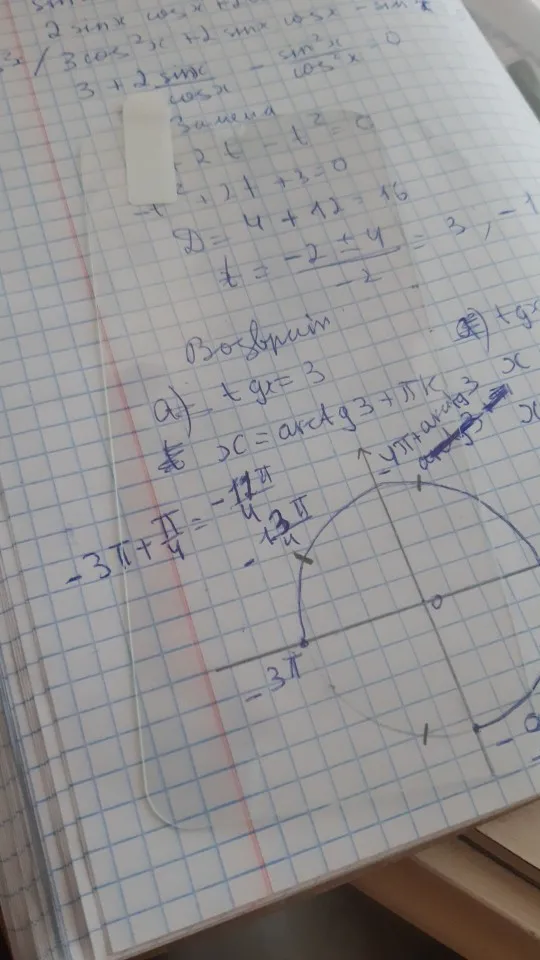 2 sinx cosx + 2
3cos²x + 2sinx cosx - sin²x
3 + 2 sinx/cosx - sin²x/cos²x = 0
Замена
2t - t² = 0
-t² + 2t + 3 = 0
D = 4 + 12 = 16
t = (-2 ± 4)/-2 = 3, -1
Возврат
а) tgx = 3
tgx
x = arctg3 + πk
x
x
-4π + arctg3
-3π + π/4 = -11π/4
-13π/4
0
-3π